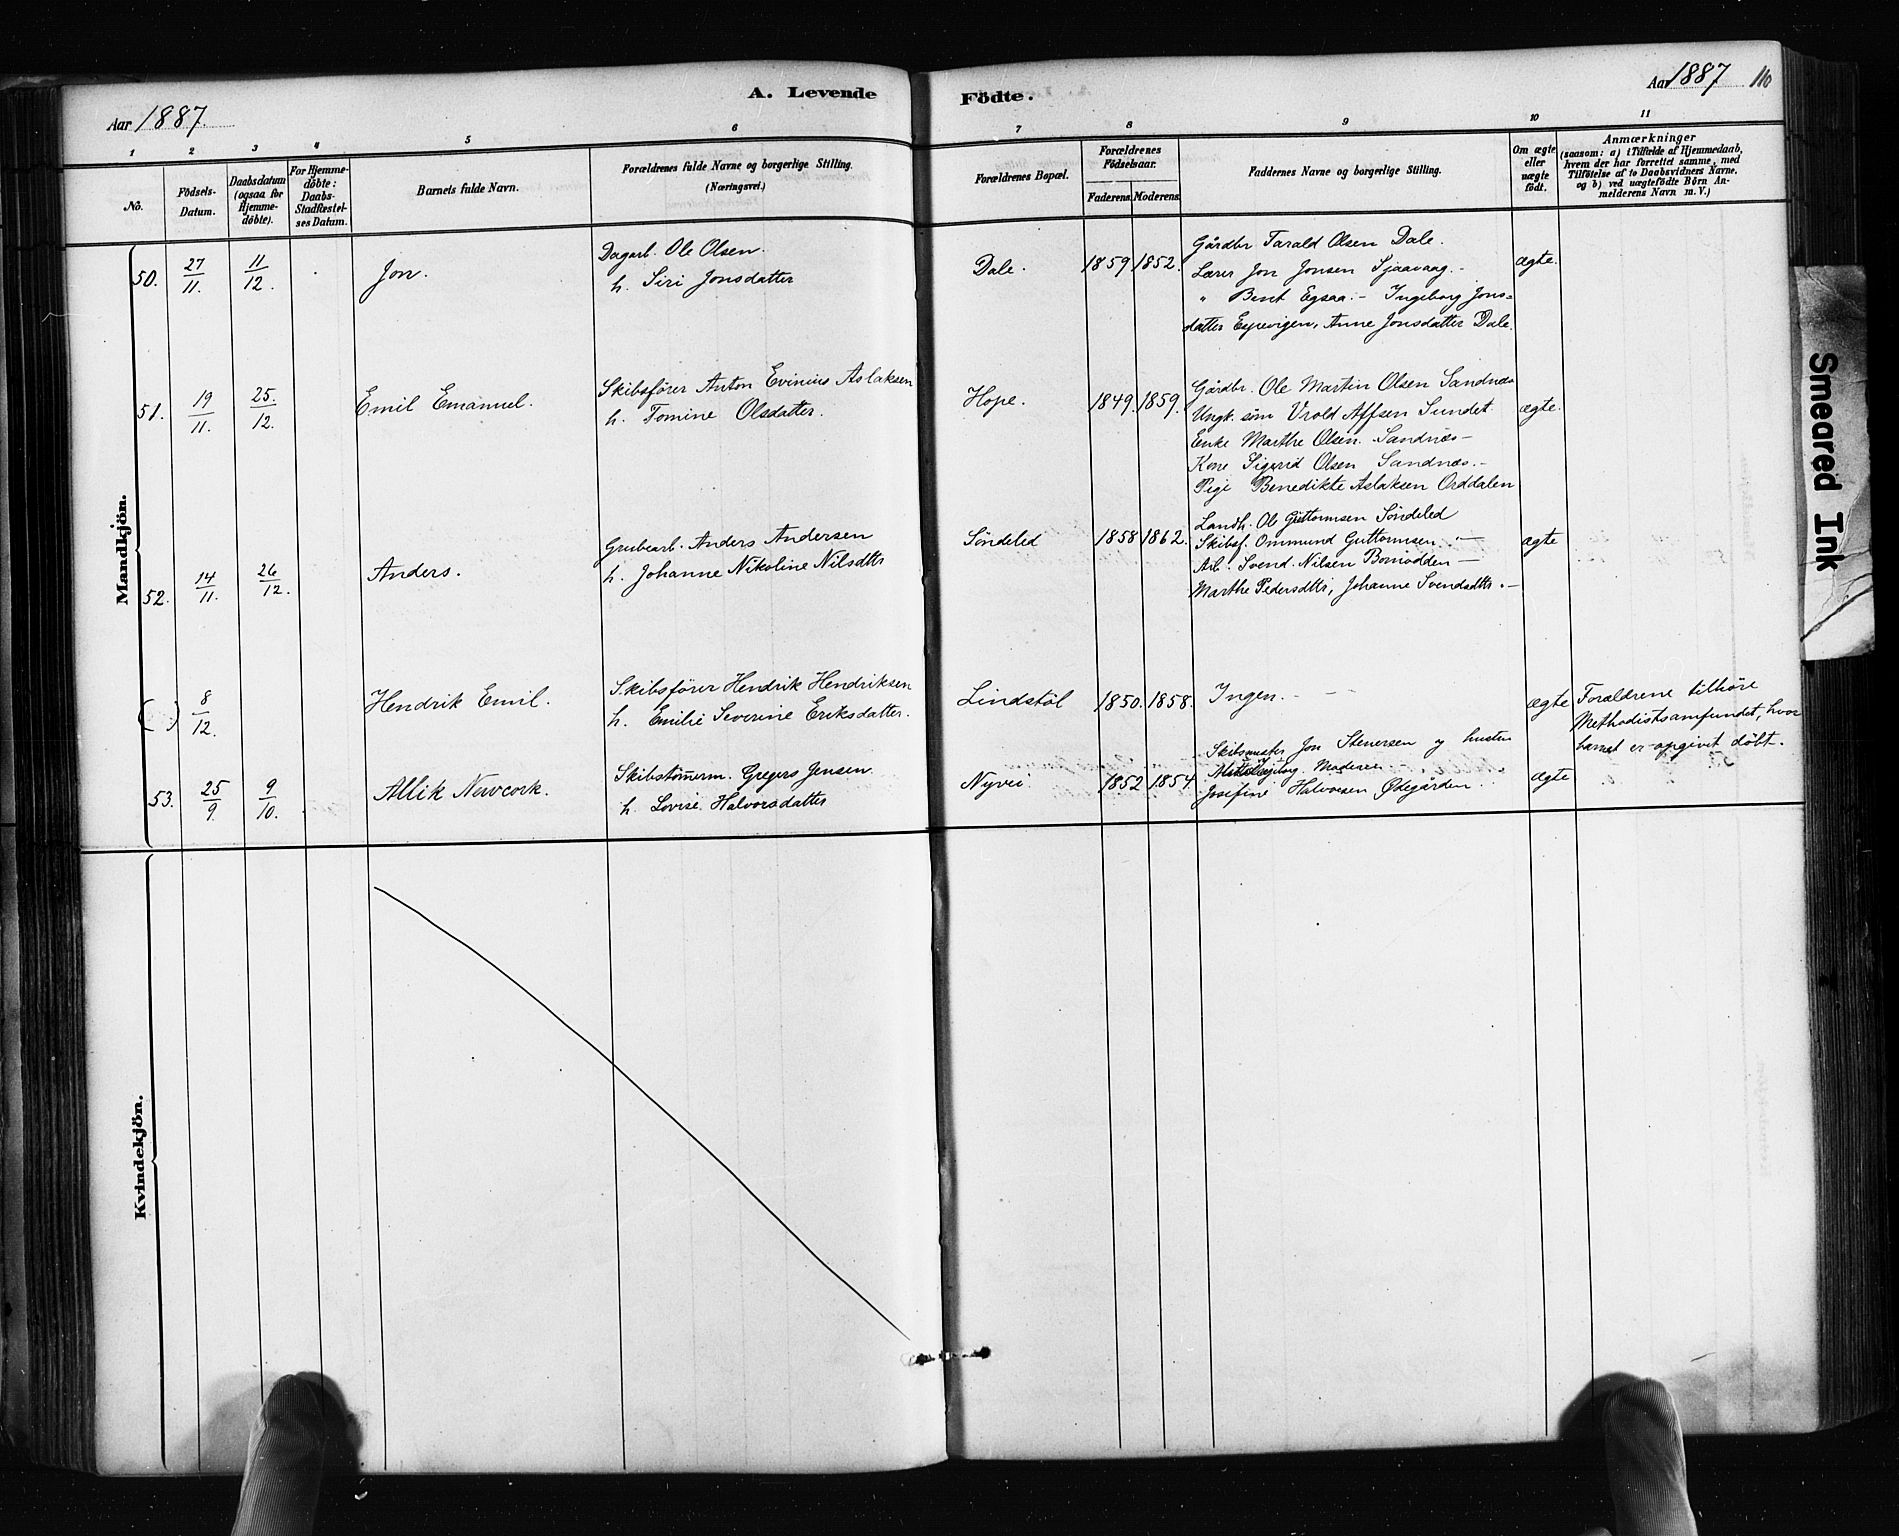 A. Levende Födte.
Aar 1887.
Aar 1887 110
1 2 3 4 5 6 7 8 9 10 11
No.
Födsels-
Datum.
Daabsdatum
(ogsaa for
Hjemme-
döbte).
For Hjemme-
döbte:
Daabs-
Stadfæstel-
ses Datum.
Barnets fulde Navn.
Forældrenes fulde Navne og borgerlige Stilling.
(Næringsvei.)
Forældrenes Bopæl.
Forældrenes
Födselsaar.
Faderens. Moderens.
Faddernes Navne og borgerlige Stilling.
Om ægte
eller
uægte
födt.
Anmærkninger
(saasom: a) i Tilfælde af Hjemmedaab,
hvem der har forrettet samme, med
Tilföielse af to Daabsvidners Navne,
og b) ved uægtefödte Börn An-
melderens Navn m. V.)
Mandkjön.
50. 27/11. 11/12. Jon.
Dagarb. Ole Olsen.
h. Siri Jonsdatter
Dale. 1859 1852.
Gårdbr Tarald Olsen Dale.
Lærer Jon Jonsen Sjaavaag. -
" Bent Egsaa. - Ingeborg Jons=
datter Espevigen, Anne Jonsdatter Dale.
ægte.
51. 19/11. 25./12. Emil Emanuel.
Skibsfører Anton Evinius Aslaksen
h. Tomine Olsdatter.
Hope. 1849. 1859.
Gårdbr. Ole Martin Olsen Sandnæs
Ungk. søm Vrold Alfsen Sundet
Enke Marthe Olsen. Sandnæs -
Kone Sigerid Olsen Sandnæs. -
Pige Benedikte Aslaksen Orddalen
ægte.
52. 14/11. 26/12. Anders.
Grubearb. Anders Andersen
h. Johanne Nikoline Nilsdttr
Söndeled 1858 1862.
Landh. Ole Guttormsen Söndeled
Skibsf. Ommund Guttormsen " -
Arb. Svend Nilsen -
Marthe Pedersdttr, Johanne Svendsdttr. -
ægte
( ) 8/12. Hendrik Emil.
Skibsfører Hendrik Hendriksen
h. Emilie Severine Eriksdatter.
Lindstöl 1850. 1858.
Ingen. - -
ægte
Forældrene tilhöre
Methodistsamfundet, hvor
barnet er opgivet döbt.
53. 25/9. 9/10. Allik Newcork.
Skibstömerm. Gregers Jensen.
h. Lovise Halvorsdatter
Nyvei 1852 1854.
Skibsmster Jon Stenersen og hustru
Ingeborg Moderen -
Josefine Halvorsen Ødegården.
ægte
Kvindekjön.
Smeared Ink